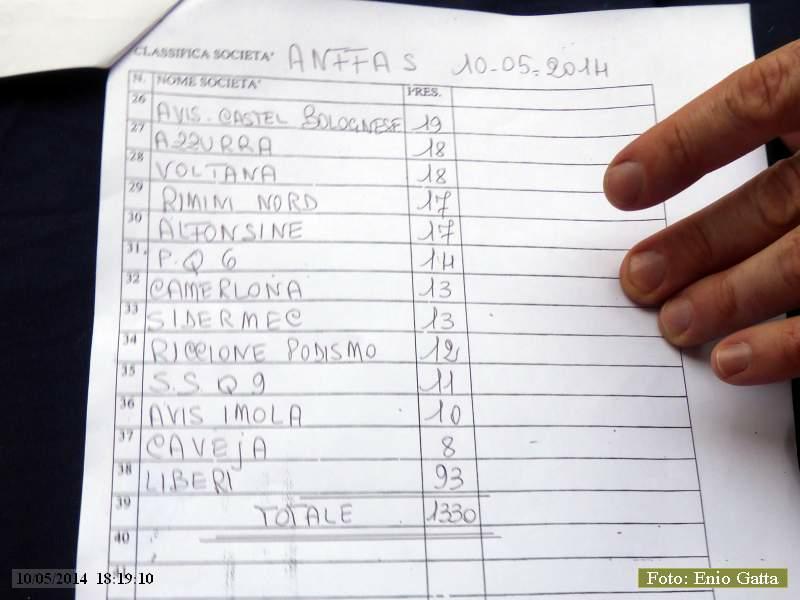 CLASSIFICA SOCIETA' ANFFAS 10-05-2014
N. NOME SOCIETA' PRES.
26 AVIS. CASTEL BOLOGNESE 19
27 AZZURRA 18
28 VOLTANA 18
29 RIMINI NORD 17
30 ALFONSINE 17
31 P.Q 6 14
32 CAMERLONA 13
33 SIDERMEC 13
34 RICCIONE PODISMO 12
35 S.S Q 9 11
36 AVIS IMOLA 10
37 CAVEJA 8
38 LIBERI 93
39 TOTALE 1330
40
41
10/05/2014 18:19:10
Foto: Enio Gatta